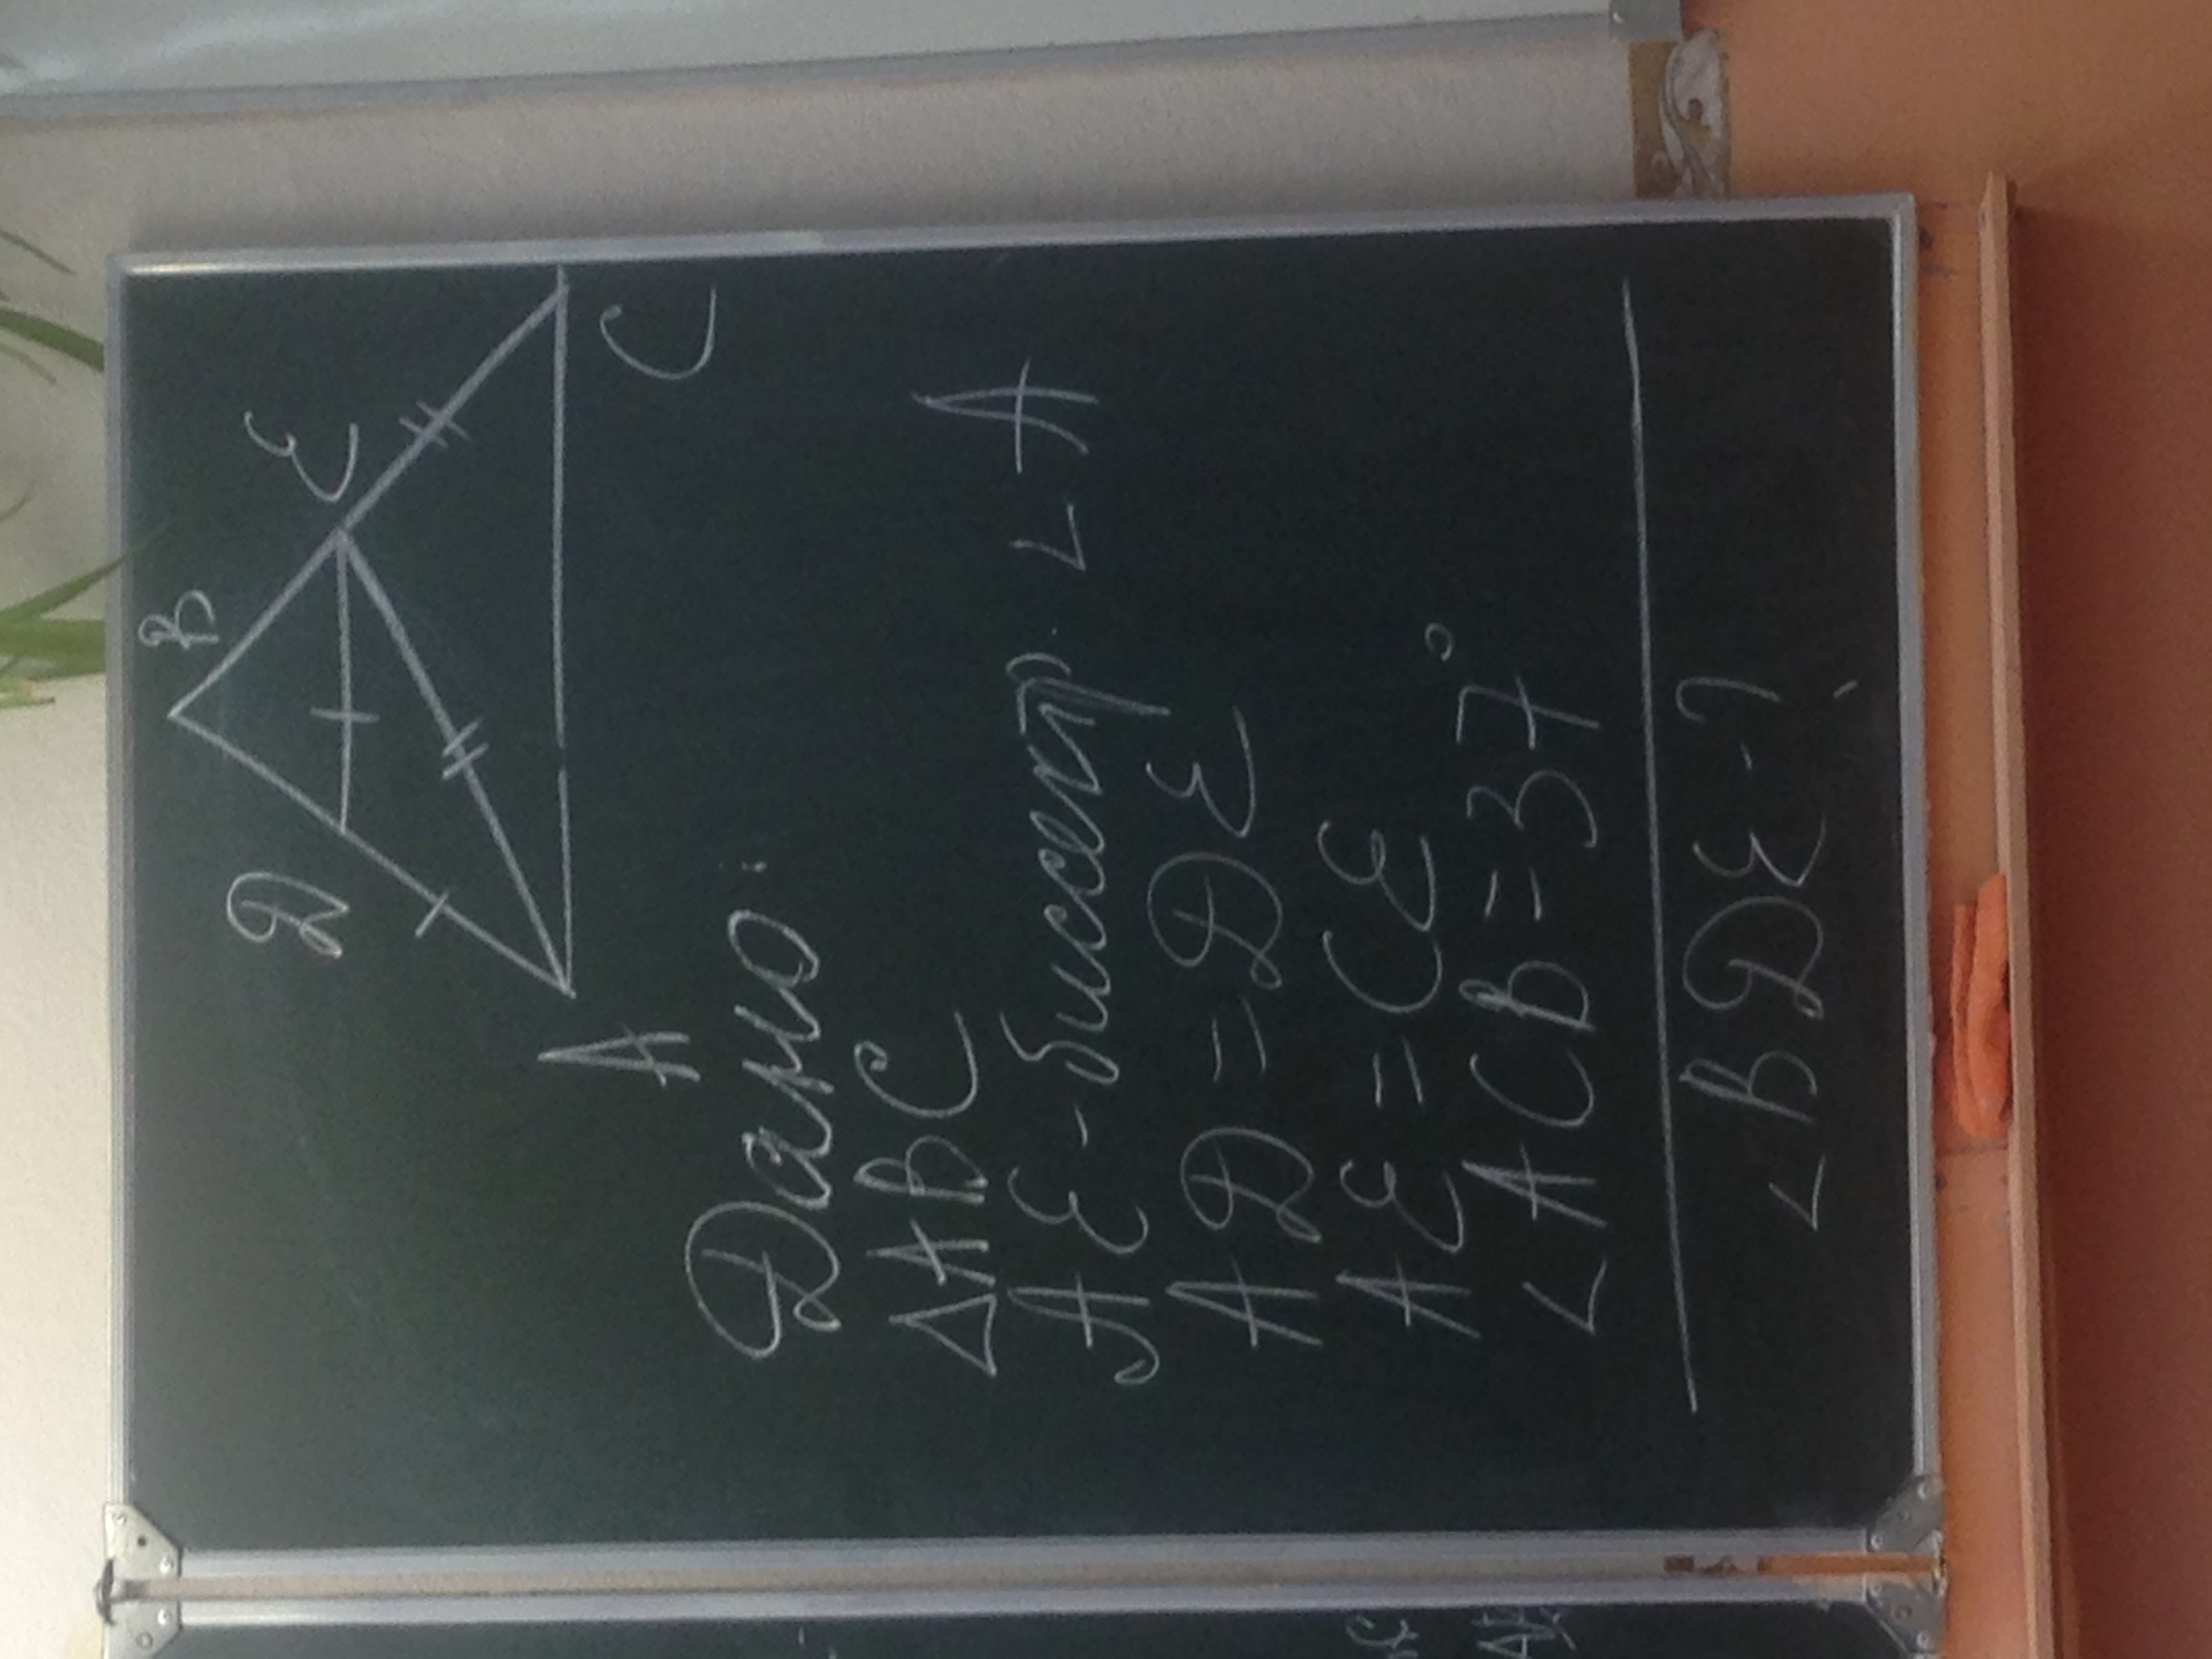 B
E
D
A
C
Дано:
△ABC
AE - биссектр. ∠A
AD = DE
AE = CE
∠ACB = 37°
∠BDE - ?